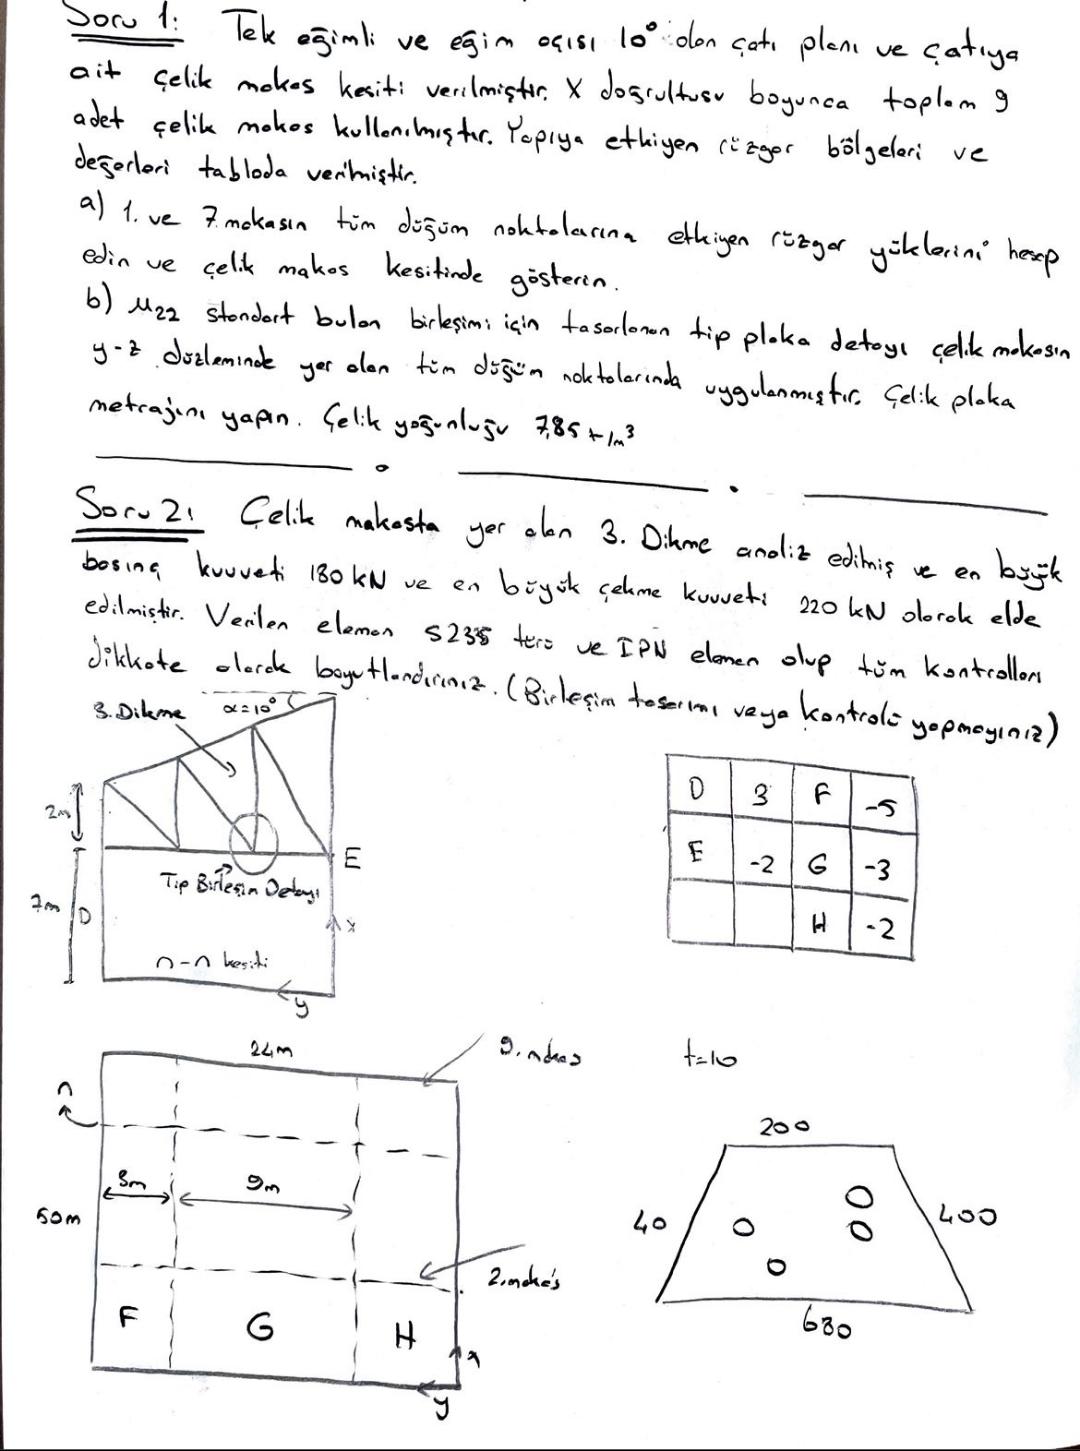 Soru 1: Tek eğimli ve eğim açısı 10° olan çatı planı ve çatıya
ait çelik makas kesiti verilmiştir. X doğrultusu boyunca toplam 9
adet çelik makas kullanılmıştır. Yapıya etkiyen rüzgar bölgeleri ve
değerleri tabloda verilmiştir.
a) 1. ve 7. makasın tüm düğüm noktalarına etkiyen rüzgar yüklerini hesap
edin ve çelik makas kesitinde gösterin.
b) M22 standart bulon birleşimi için tasarlanan tip plaka detayı çelik makasın
y-z düzleminde yer alan tüm düğüm noktalarında uygulanmıştır. Çelik plaka
metrajını yapın. Çelik yoğunluğu 7,85 t/m³
Soru 2: Çelik makasta yer alan 3. Dikme analiz edilmiş ve en büyük
basınç kuvveti 180 kN ve en büyük çekme kuvveti 220 kN olarak elde
edilmiştir. Verilen eleman S235 türü ve IPN eleman olup tüm kontrolleri
dikkate alarak boyutlandırınız. (Birleşim tasarımı veya kontrolü yapmayınız)
3. Dikme
α=10°
2m
E
Tip Birleşim Detayı
7m
D
x
n-n kesiti
y
D 3 F -5
E -2 G -3
H -2
24m
9. makas
t=10
n
200
3m
9m
50m
40
400
2. makas
680
F
G
H
x
y